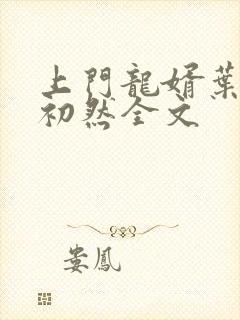 上門龍婿葉
初然全文
婁鳳